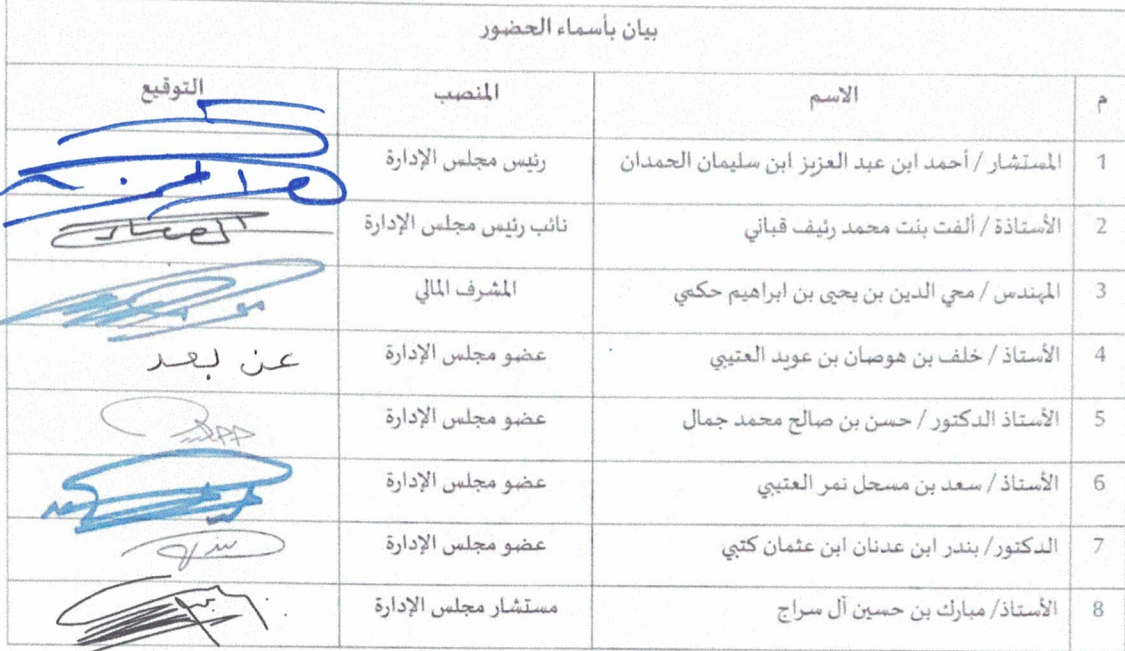 بيان بأسماء الحضور
م الاسم المنصب التوقيع
1 المستشار / أحمد ابن عبد العزيز ابن سليمان الحمدان رئيس مجلس الإدارة
2 الأستاذة / ألفت بنت محمد رئيف قباني نائب رئيس مجلس الإدارة
3 المهندس / محي الدين بن يحيى بن ابراهيم حكمي المشرف المالي
4 الأستاذ / خلف بن هوصان بن عويد العتيبي عضو مجلس الإدارة عن بعد
5 الأستاذ الدكتور / حسن بن صالح محمد جمال عضو مجلس الإدارة
6 الأستاذ / سعد بن مسحل نمر العتيبي عضو مجلس الإدارة
7 الدكتور/ بندر ابن عدنان ابن عثمان كتبي عضو مجلس الإدارة
8 الأستاذ/ مبارك بن حسين آل سراج مستشار مجلس الإدارة